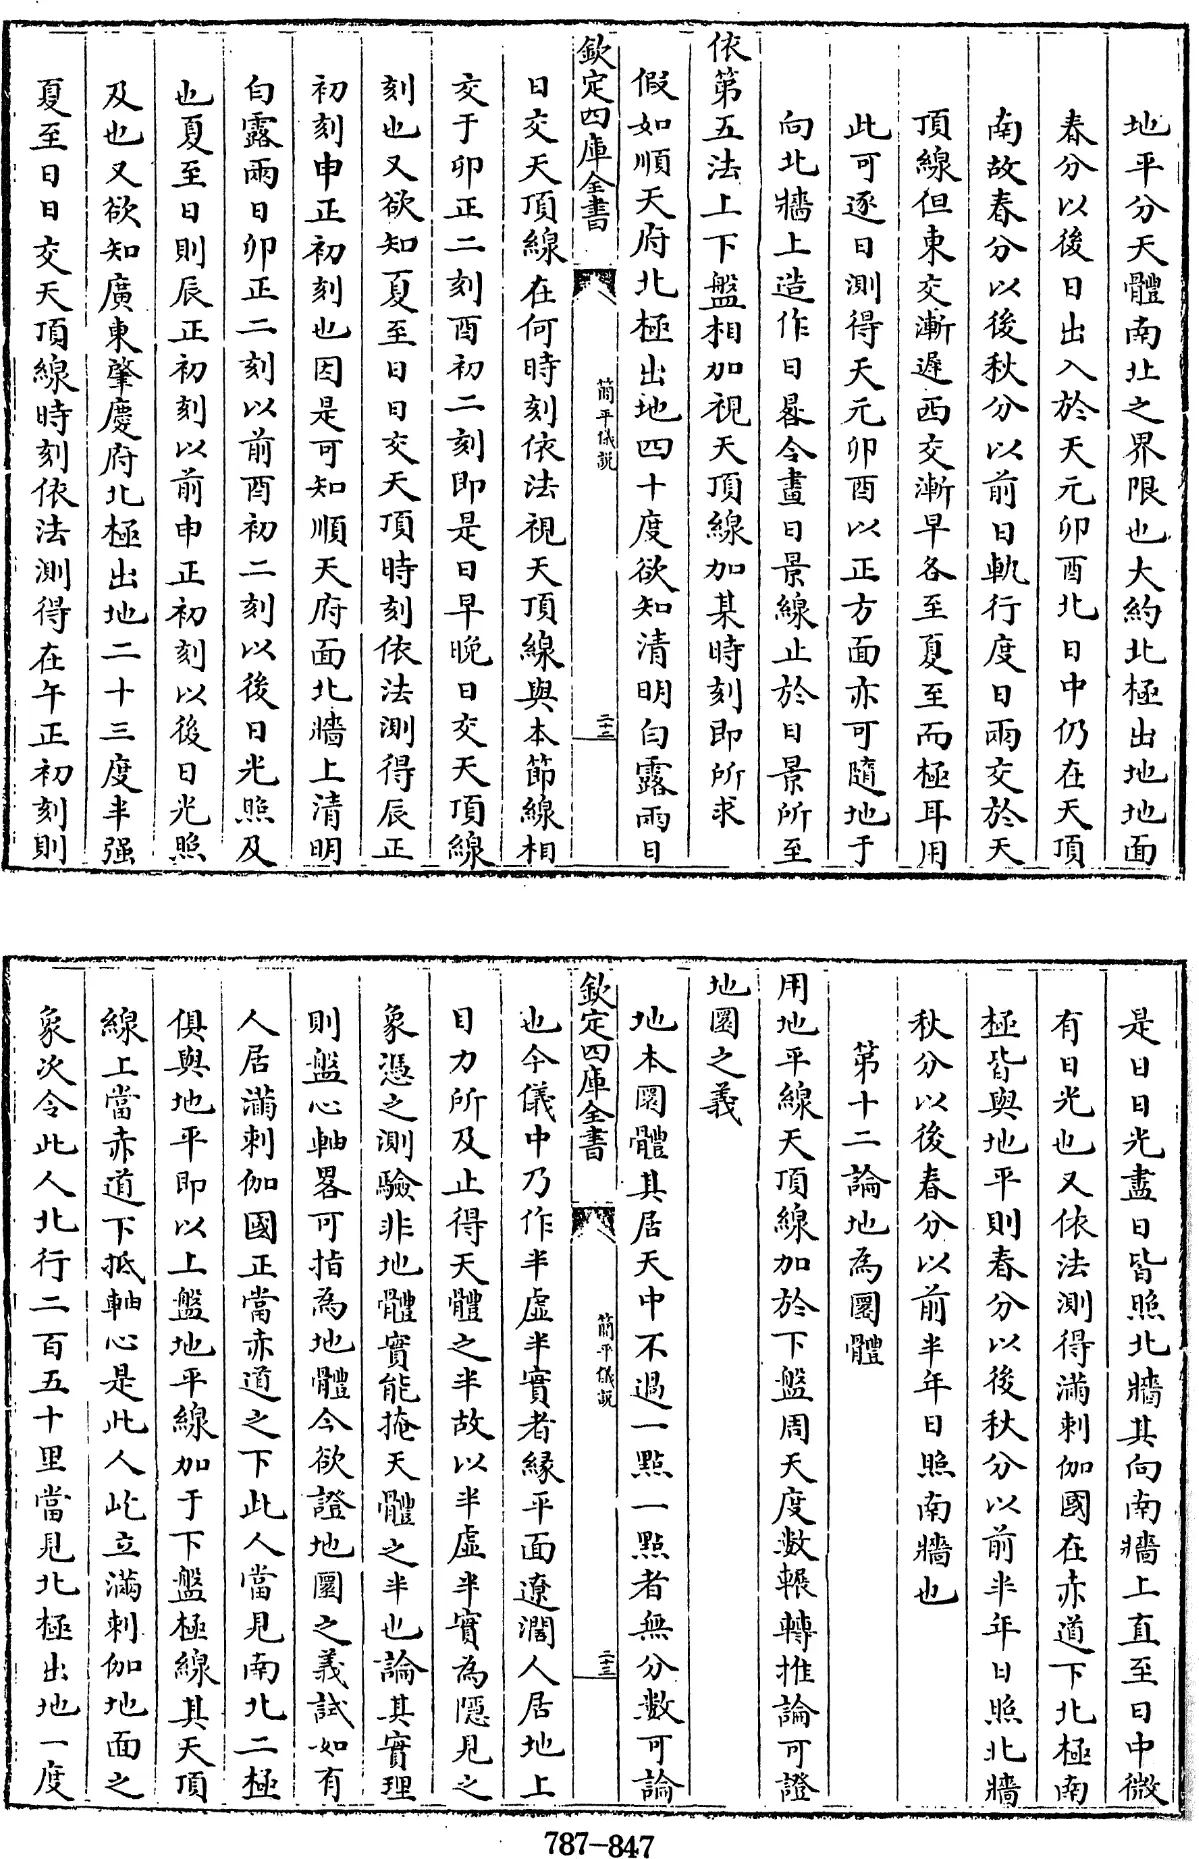 地平分天體南北之界限也大約北極出地地面
春分以後日出入於天元卯酉北日中仍在天頂
南故春分以後秋分以前日軌行度日兩交於天
頂線但東交漸遲西交漸早各至夏至而極耳用
此可逐日測得天元卯酉以正方面亦可隨地于
向北牆上造作日晷令畫日景線止於日景所至
依第五法上下盤相加視天頂線加某時刻即所求
假如順天府北極出地四十度欲知清明白露兩日
欽定四庫全書
簡平儀説
二十二
日交天頂線在何時刻依法視天頂線與本節線相
交于卯正二刻酉初二刻即是日早晚日交天頂線
刻也又欲知夏至日日交天頂時刻依法測得辰正
初刻申正初刻也因是可知順天府面北牆上清明
白露兩日卯正二刻以前酉初二刻以後日光照及
也夏至日則辰正初刻以前申正初刻以後日光照
及也又欲知廣東肇慶府北極出地二十三度半强
夏至日日交天頂線時刻依法測得在午正初刻則
是日日光盡日皆照北牆其向南牆上直至日中微
有日光也又依法測得滿剌伽國在赤道下北極南
極皆與地平則春分以後秋分以前半年日照北牆
秋分以後春分以前半年日照南牆也
第十二論地為圜體
用地平線天頂線加於下盤周天度數輾轉推論可證
地圜之義
地本圜體其居天中不過一點一點者無分數可論
欽定四庫全書
簡平儀説
二十三
也今儀中乃作半虛半實者緣平面遼濶人居地上
目力所及止得天體之半故以半虛半實為隱見之
象憑之測驗非地體實能掩天體之半也論其實理
則盤心軸畧可指為地體今欲證地圜之義試如有
人居滿剌伽國正當赤道之下此人當見南北二極
俱與地平即以上盤地平線加于下盤極線其天頂
線上當赤道下抵軸心是此人此立滿剌伽地面之
象次令此人北行二百五十里當見北極出地一度
787-847